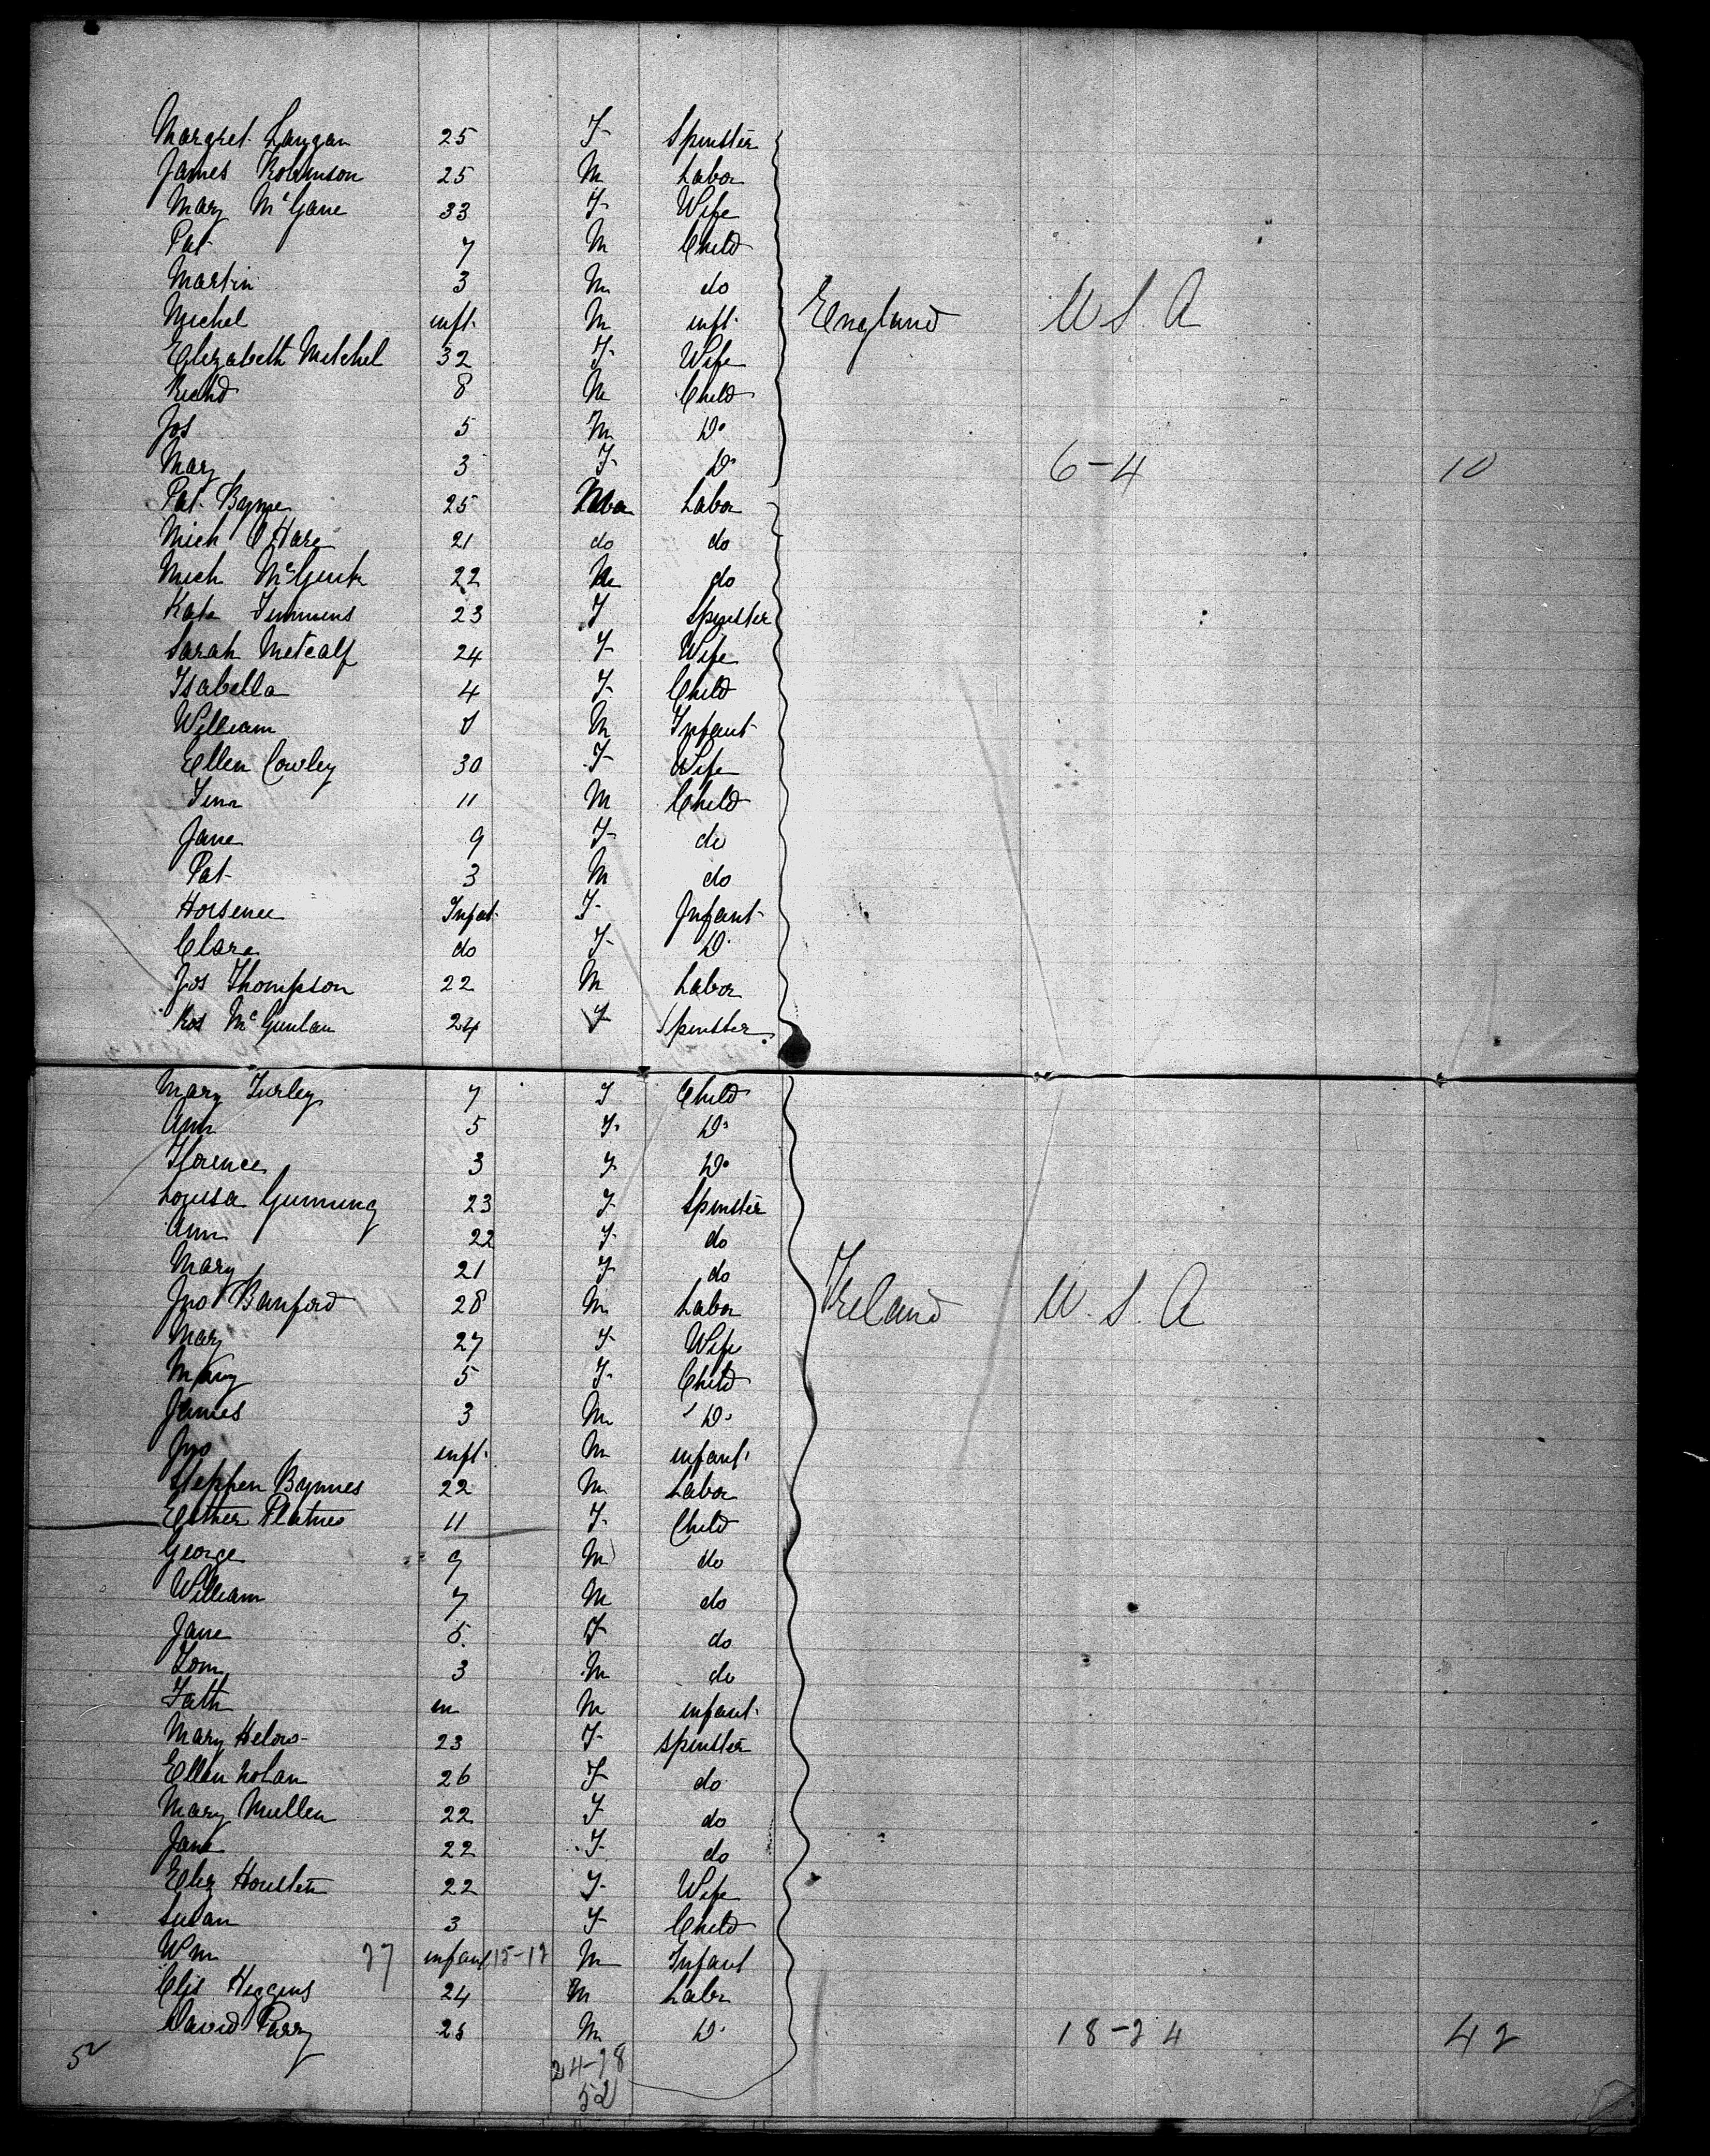 Margret Langan 25 F Spinster
James Robinson 25 M Labor
Mary McGane 33 F Wife
Pat 7 M Child
Martin 3 M do
Michel inft. M inft. England U S. A
Elizabeth Mitchel 32 F Wife
Richd 8 M Child
Jos 5 M Do
Mary 3 F Do 6-4 10
Pat. Byrne 25 Labor
Mich O Hare 21 do do
Mich McGurk 22 M do
Kate Timmins 23 F Spinster
Sarah Metcalf 24 F Wife
Isabella 4 F Child
William M Infant
Ellen Cowley 30 F Wife
11 M Child
Jane 9 F do
Pat 3 M do
Infat. F Infant
Clara do F Do
Jos Thompson 22 M Labor
Ros 24 F Spinster
Mary Turley 7 F Child
Ann 5 F Do
Florence 3 F Do
Louisa 23 F Spinster
Ann 22 F do
Mary 21 F do
Jno Banford 28 M Labor Ireland U. S. A
Mary 27 F Wife
Mary 5 F Child
James 3 M Do
Jno inft. M infant
Stephen Byrnes 22 M Labor
Esther 11 F Child
George 9 M do
William 7 M do
Jane 5 F do
Tom 3 M do
in M infant
Mary 23 F Spinster
Ellen Nolan 26 F do
Mary Mullen 22 F do
Jane 22 F do
Eliz Houston 22 F Wife
Susan 3 F Child
Wm 27 infant 15-12 M Infant
Higgins 24 M Labr
David Parry 25 M Do 18-24 42
52 24-28
52